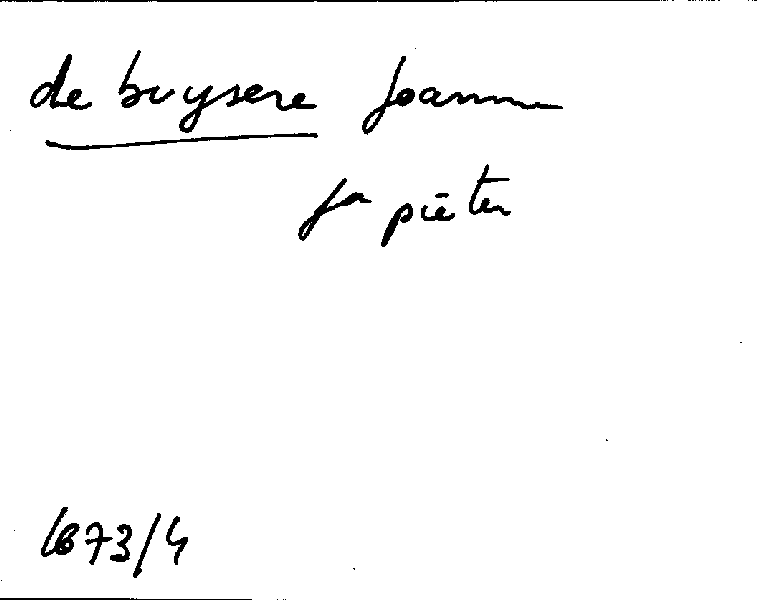 de buysere Joanna
fa pieter
1673/4